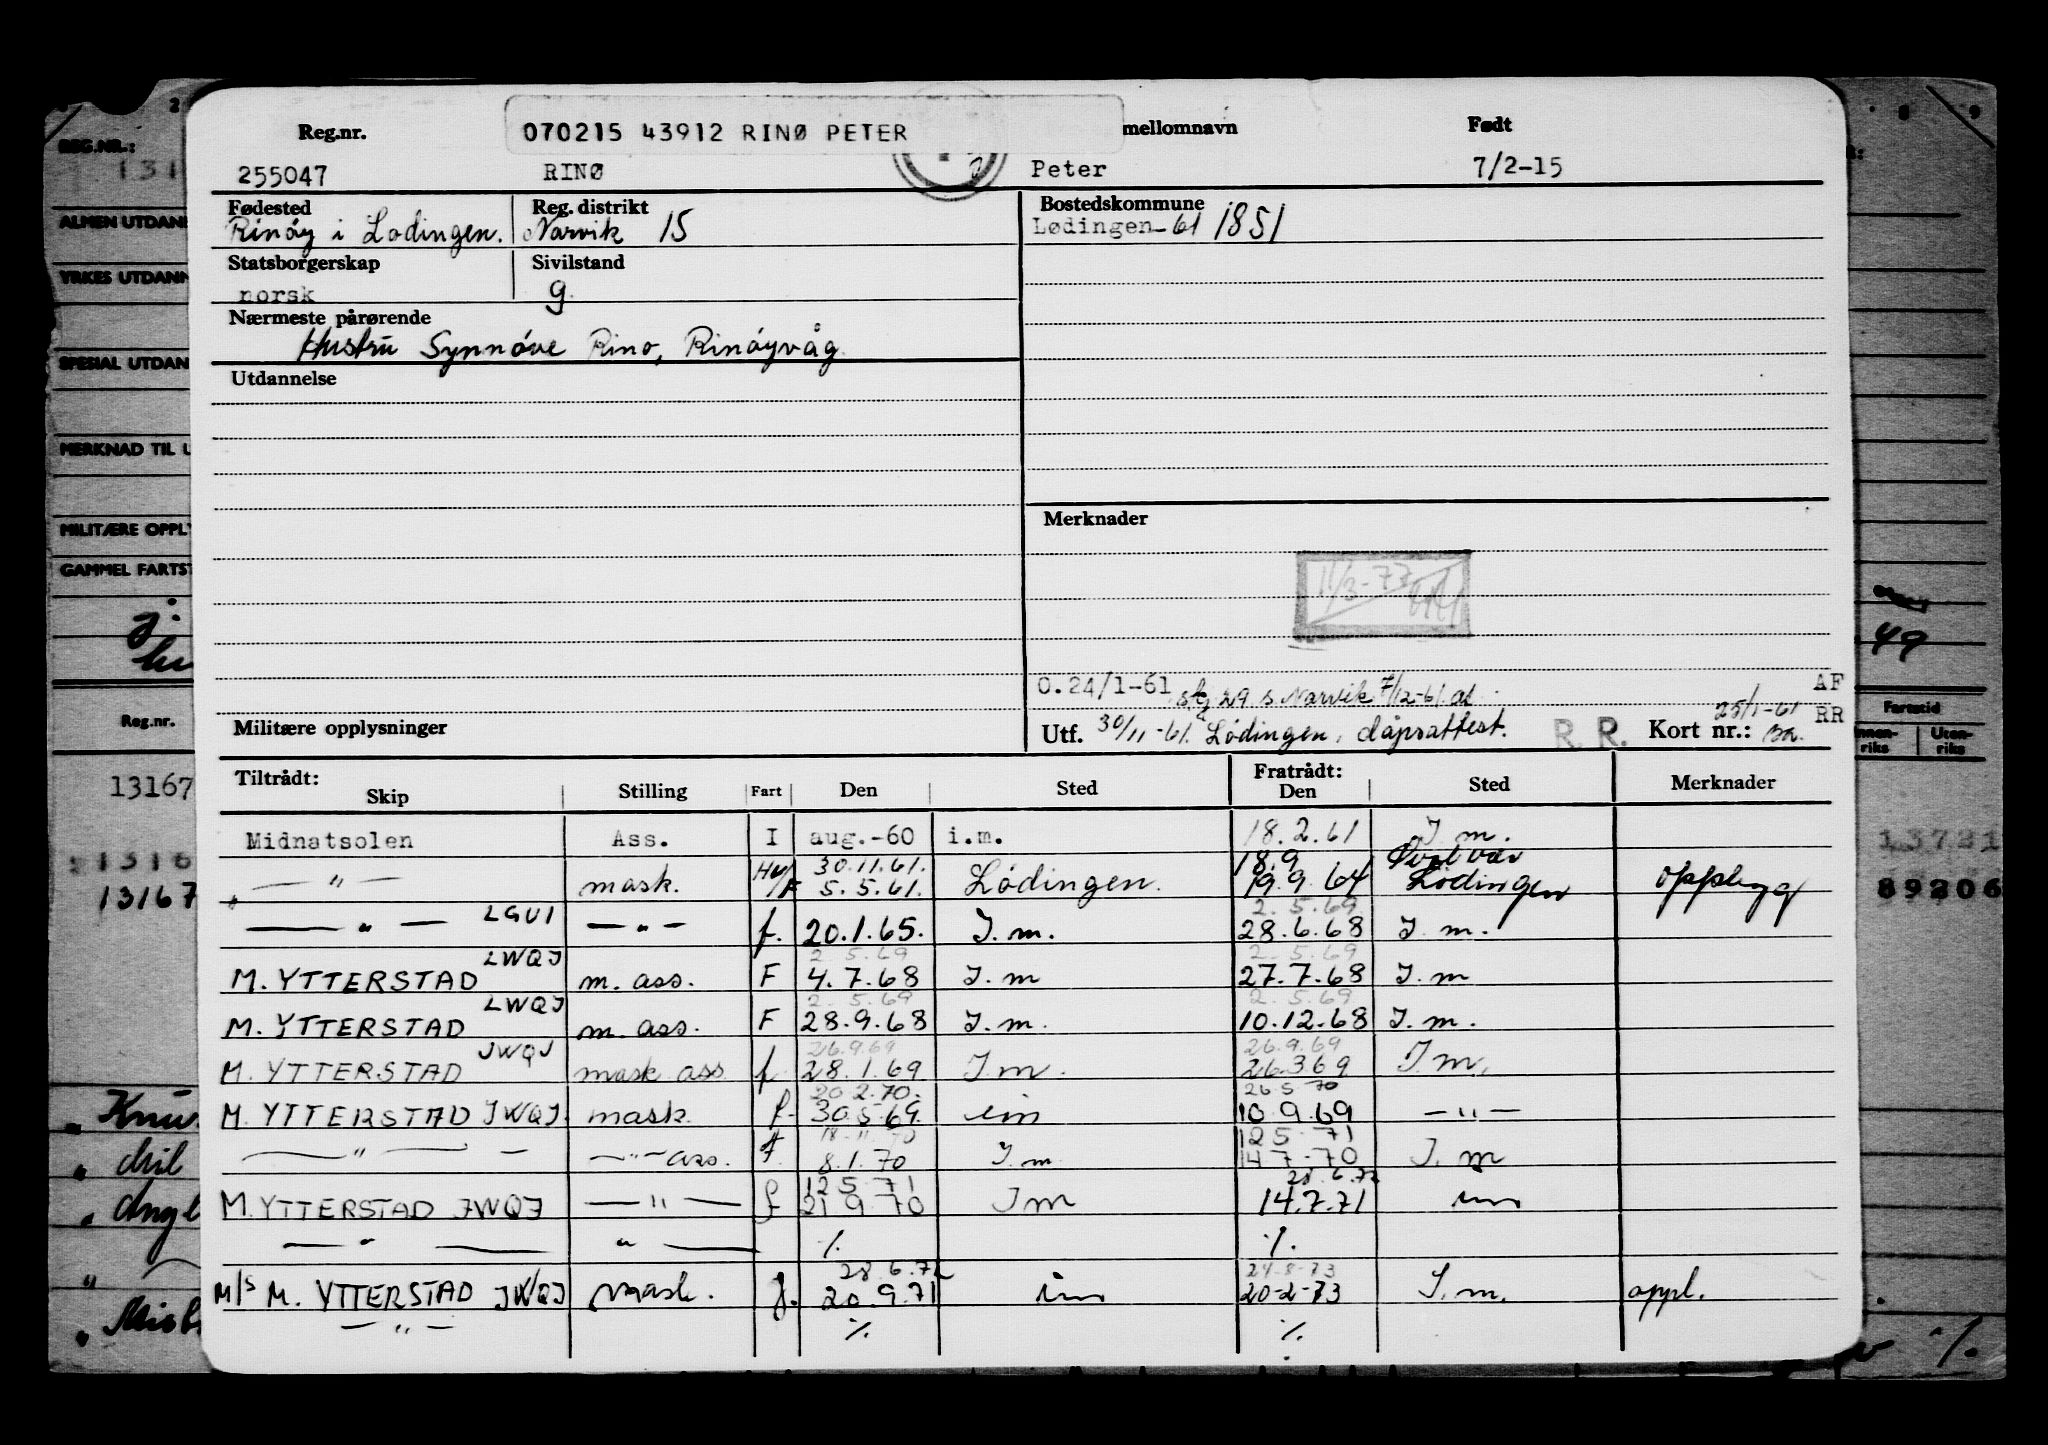 070215 43912 RINØ PETER
Reg.nr. mellomnavn Født
255047 RINØ Peter 7/2-15
Fødested Reg. distrikt Bostedskommune
Rinöy i Lødingen. Narvik 15 Lødingen-61 1851
Statsborgerskap Sivilstand
norsk g.
Nærmeste pårørende
Hustru Synnöve Rino, Rinöyvåg
Utdannelse
Merknader
11/3-73
O.24/1-61 sfg 29 s Narvik 7/12-61. AF
Militære opplysninger Utf. 30/11-61. Lödingen, dåpsattest. R. R. Kort nr.: 25/1-61 RR
Tiltrådt: Fratrådt:
Skip Stilling Fart Den Sted Den Sted Merknader
Midnatsolen Ass. I aug.-60 i.m. 18.2.61 I m.
30.11.61. 18.9
— " — mask. 5.5.61. Lödingen. 19.9.64 Lödingen oppbygg
2.5.69
— " — LGUI — " — f. 20.1.65. I.m. 28.6.68 I.m.
2.5.69 2.5.69
M. YTTERSTAD LWQJ m. ass. F 4.7.68 I.m 27.7.68 I.m
2.5.69 2.5.69
M. YTTERSTAD LWQJ m. ass. F 28.9.68 I.m. 10.12.68 I.m.
26.9.69 26.9.69
M. YTTERSTAD JWQJ mask ass f 28.1.69 I m. 26.3.69 I m.
20.2.70. 26.5.70
M. YTTERSTAD JWQJ. mask. f. 30.5.69. im 10.9.69 — " —
18.11.70 12.5.71
— " — — " — ass. F 8.1.70 I m 14.7.70 I.m
12.5.71 28.6.72
M. YTTERSTAD JWQJ — " — f 21.9.70 I m 14.7.71 im
— " — " — ./. ./.
28.6.72 24-8-73
M/S M. YTTERSTAD JWQJ mask. f. 20.9.71 im 20-2-73 I.m. oppl.
— " — ./. ./.
REG.NR.:
131
ALMEN UTDANN
YRKES UTDANN
SPESIAL UTDAN
MERKNAD TIL U
MILITÆRE OPPLY
GAMMEL FARTST
49
Reg.nr. Fartstid
Innen-riks Uten-riks
13167
1316 13721
13167 89206